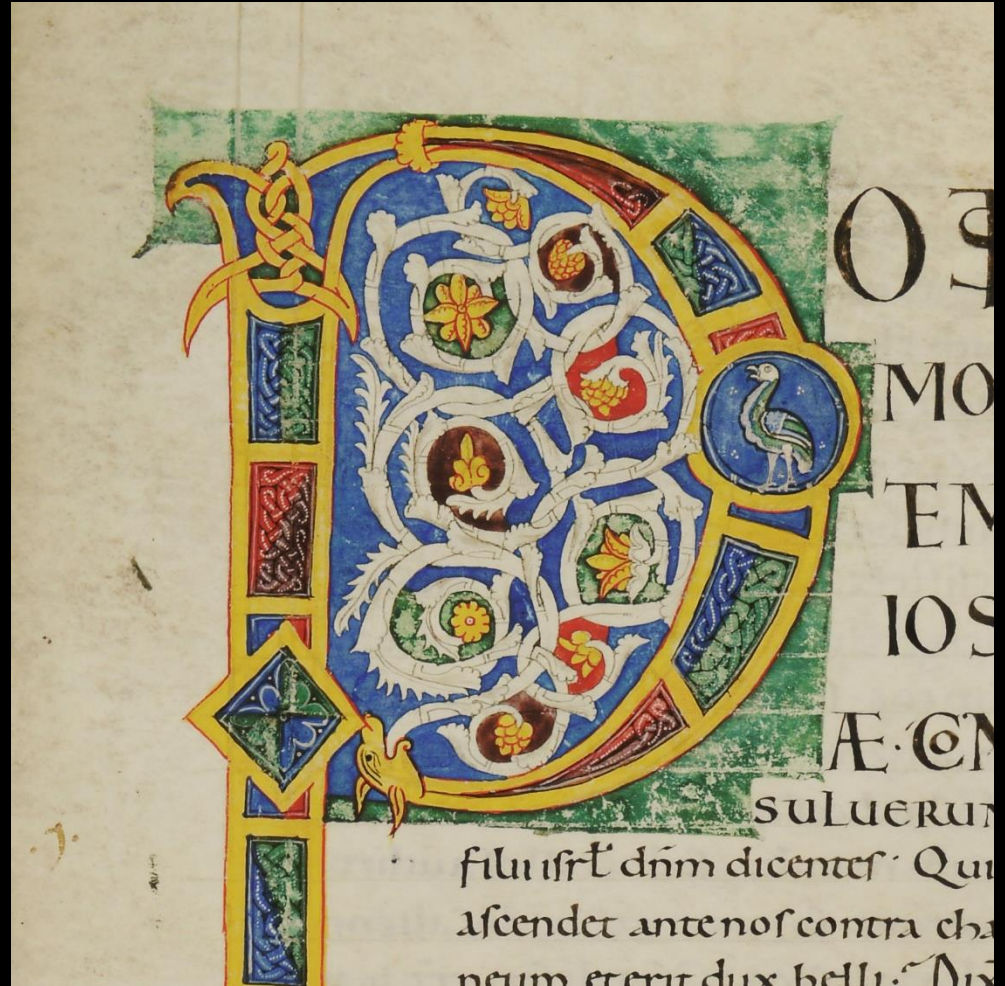 P OS
MO
TEM
IOS
Æ · CON
SULUERUN
filii isrł dñm dicentes · Qui
ascendet ante nos contra cha
neum et erit dux belli · Dix